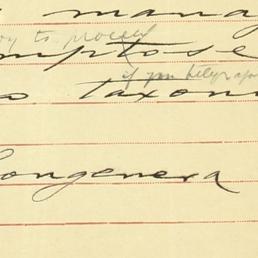 manag
to proceed
imptose
if you telegraph
o taxon
Congenera